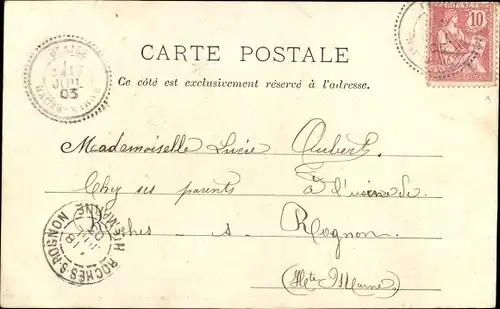 CARTE POSTALE
Ce côté est exclusivement réservé à l'adresse.
10
JUIL
03
HAUTE-MARNE
Mademoiselle Lucie Aubert
Chez ses parents à l'usine de
Roches - s - Rognon
(Hte Marne)
ROCHES-S-ROGNON
HTE MARNE
18